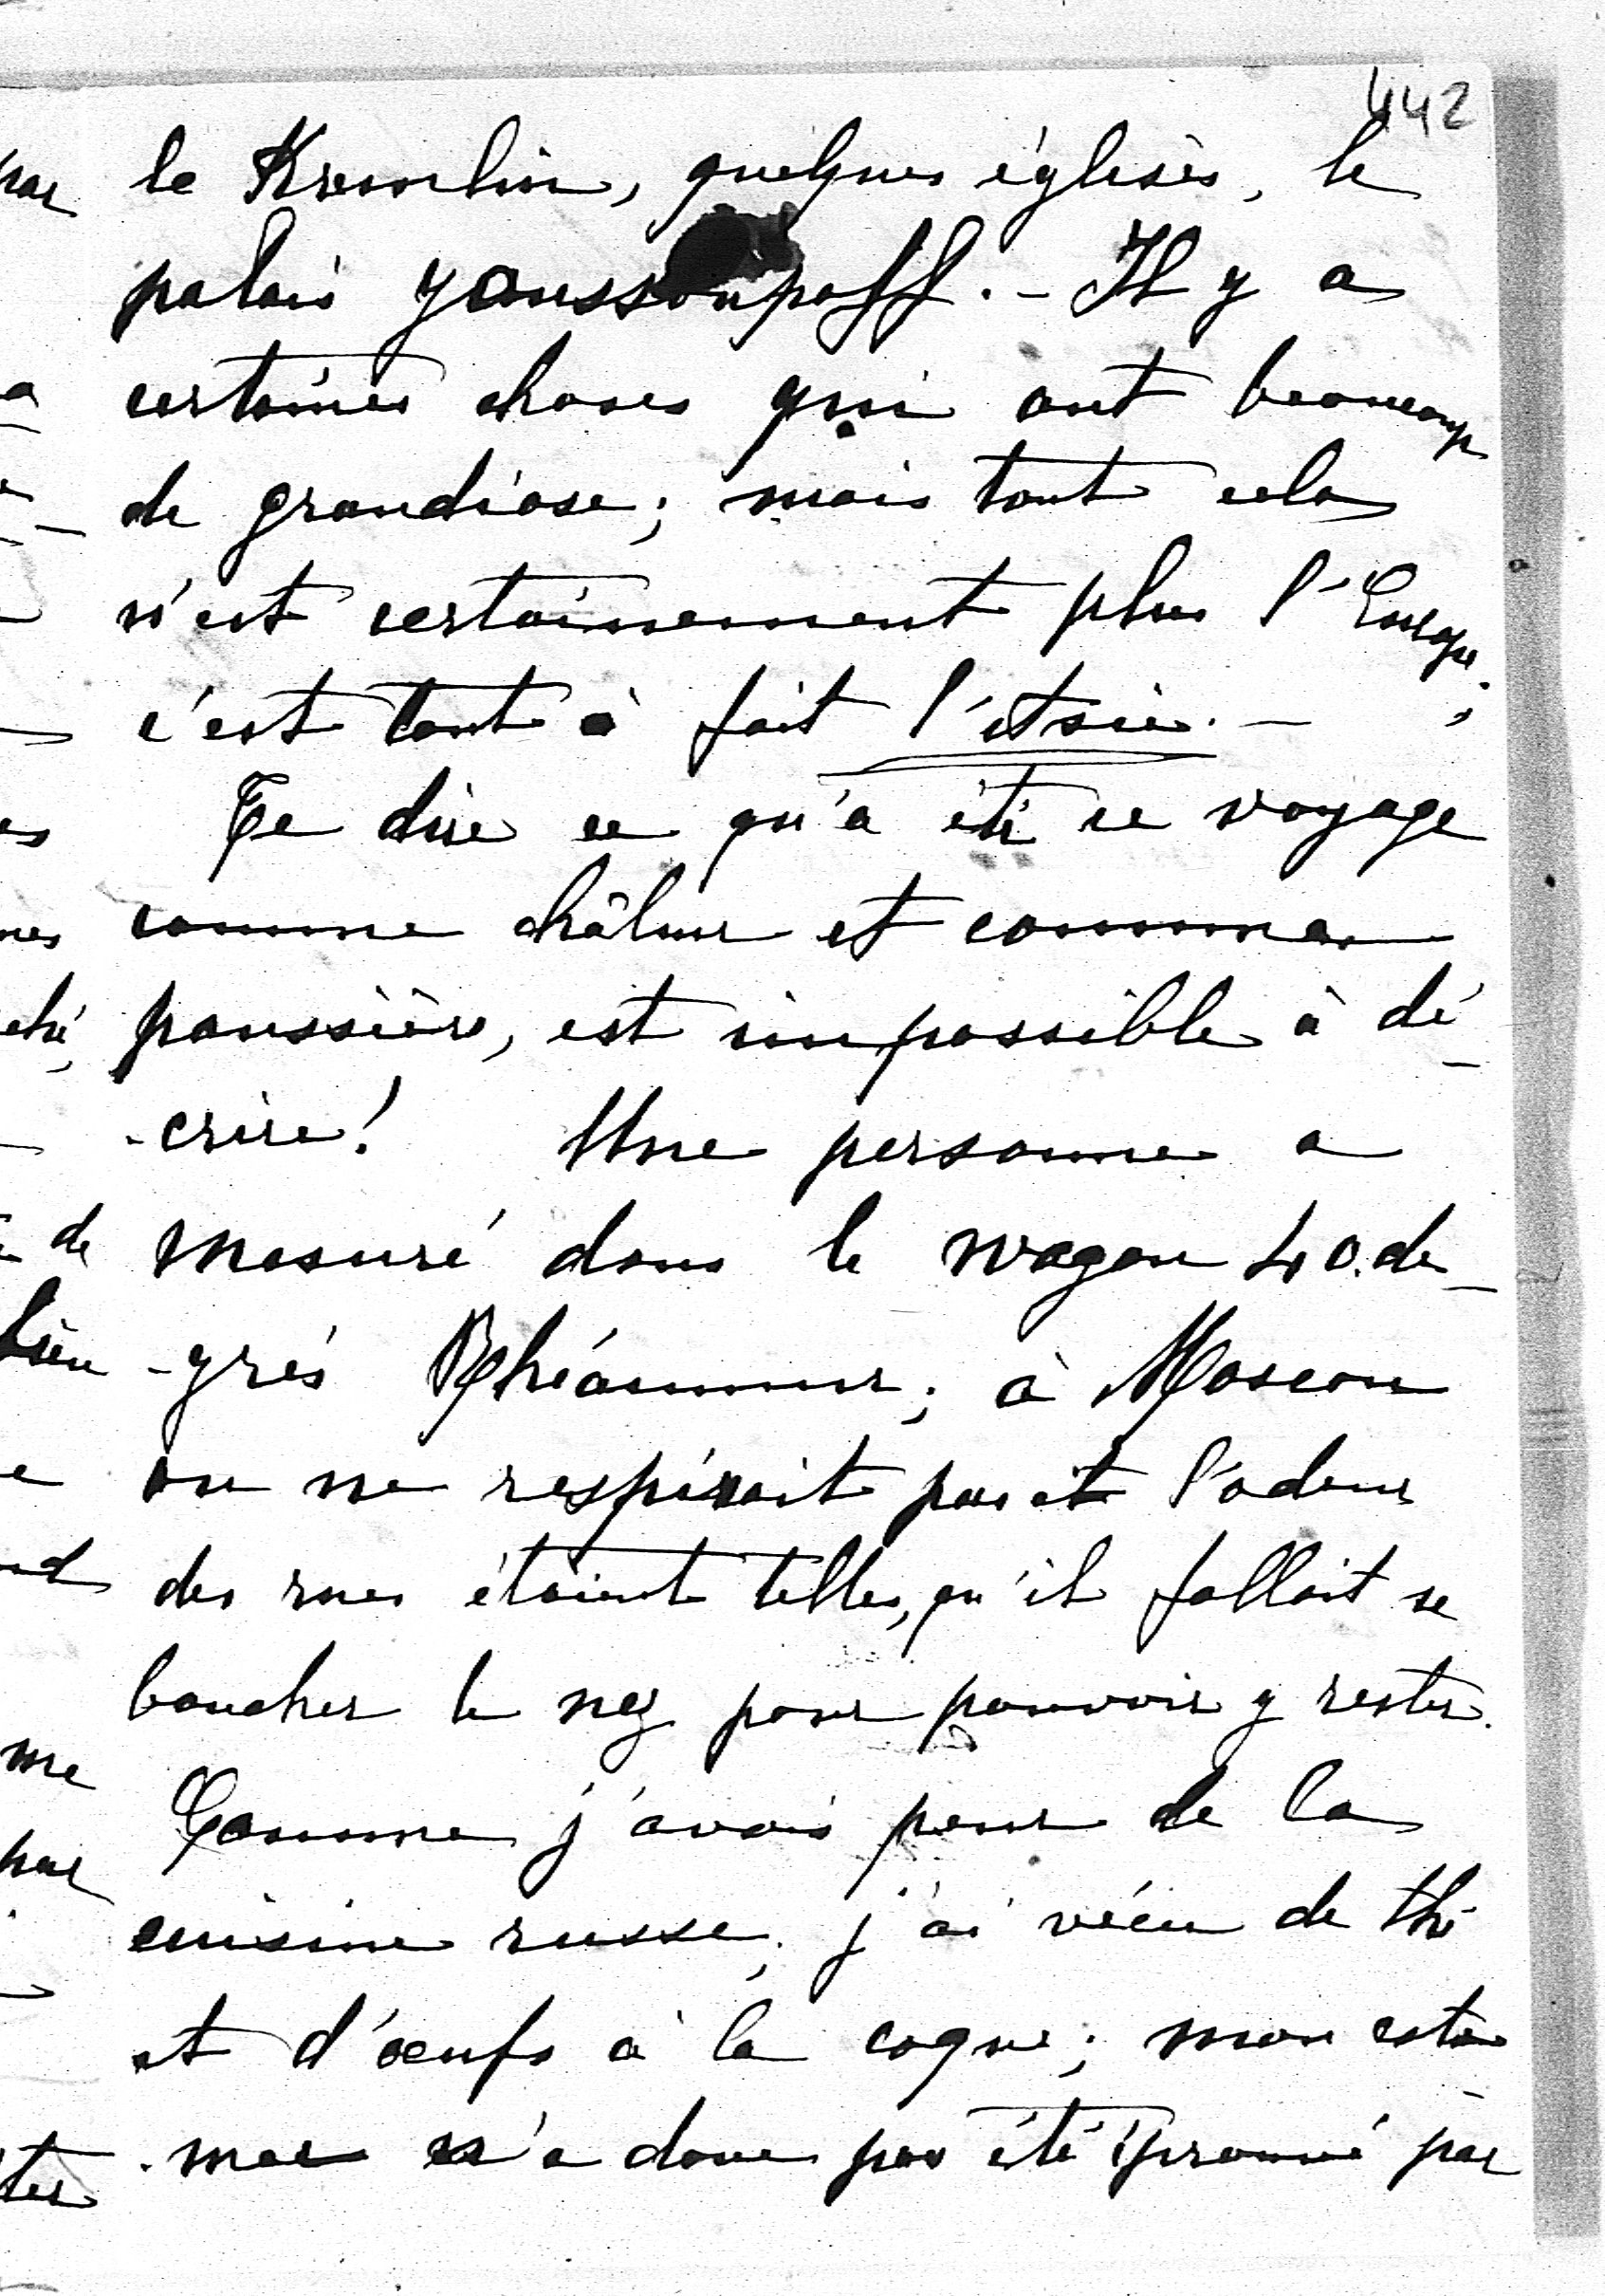 442
le Kremlin, quelques églises, le
palais Youssoupoff. - Il y a
certaines choses qui ont beaucoup
de grandiose; mais tout cela
n'est certainement plus l'Europe;
c'est tout à fait l'Asie. -
Te dire ce qu'a été ce voyage
comme châleur et comme
poussière, est impossible à dé-
-crire! Une personne a
mesuré dans le wagon 40 de-
-grés Rhéaumur; à Moscou
on ne respirait pas et l'odeur
des rues étaient telles, qu'il fallait se
boucher le nez pour pouvoir y rester.
Comme j'avais peur de la
cuisine russe, j'ai vécu de thé
et d'œufs à la coque; mon esto-
-mac n'a donc pas été éprouvé par